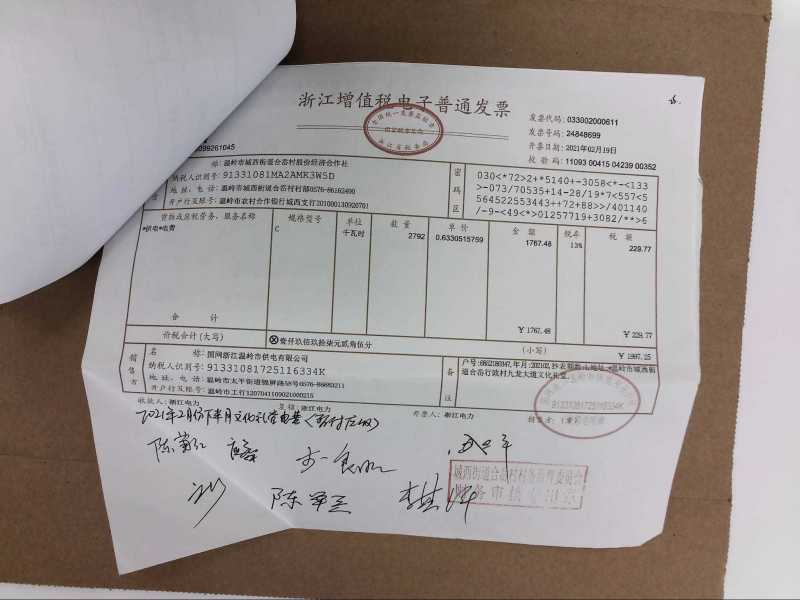 浙江增值税电子普通发票
发票代码: 033002000611
发票号码: 24848699
开票日期: 2021年02月19日
校验码: 11093 00415 04239 00352
099261045
称: 温岭市城西街道合岙村股份经济合作社
纳税人识别号: 91331081MA2AMK3W5D
地址、电话: 温岭市城西街道合岙村村部0576-86162499
开户行及账号: 温岭市农村合作银行城西支行201000130920701
密码区
030<*72>2+*5140+-3058<*-<133
>-073/70535+14-28/19*7<557<5
564522553443++72+88>>/401140
/-9-<49<*>01257719+3082/**>6
货物或应税劳务、服务名称 规格型号 单位 数量 单价 金额 税率 税额
*供电*电费 C 千瓦时 2792 0.6330515759 1767.48 13% 229.77
合计 ¥1767.48 ¥229.77
价税合计(大写) ⊗壹仟玖佰玖拾柒元贰角伍分 (小写) ¥1997.25
销售方
名称: 国网浙江温岭市供电有限公司
纳税人识别号: 91331081725116334K
地址、电话: 温岭市太平街道锦屏路58号0576-86683211
开户行及账号: 温岭市工行1207041109021000215
备注
户号:6602180347,年月:202102,
道合岙行政村九龙大道文化礼堂
收款人: 浙江电力 复核: 浙江电力 开票人: 浙江电力
91331081725116334K
2021年2月份下半月文化礼堂电费
城西街道合岙村村务监督委员会